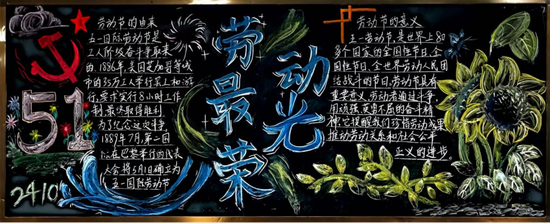 劳动节的由来
五一国际劳动节是
工人阶级奋斗争取来
的,1886年,美国芝加哥等城
市的35万工人举行罢工和游
行,要求实行8小时工作
制,最终取得胜利
为了纪念这次斗争
1889年7月,第二国
际在巴黎举行的代表
大会将5月1日确立为
五一国际劳动节
51
2410
劳动
最光
荣
劳动节的意义
五一劳动节,是世界上80
多个国家的全国性节日,全
国性节日,全世界劳动人民团
结战斗的节日,劳动节具有
重要意义,劳动者通过斗争
用顽强
推动劳动关系和社会公平
正义的进步